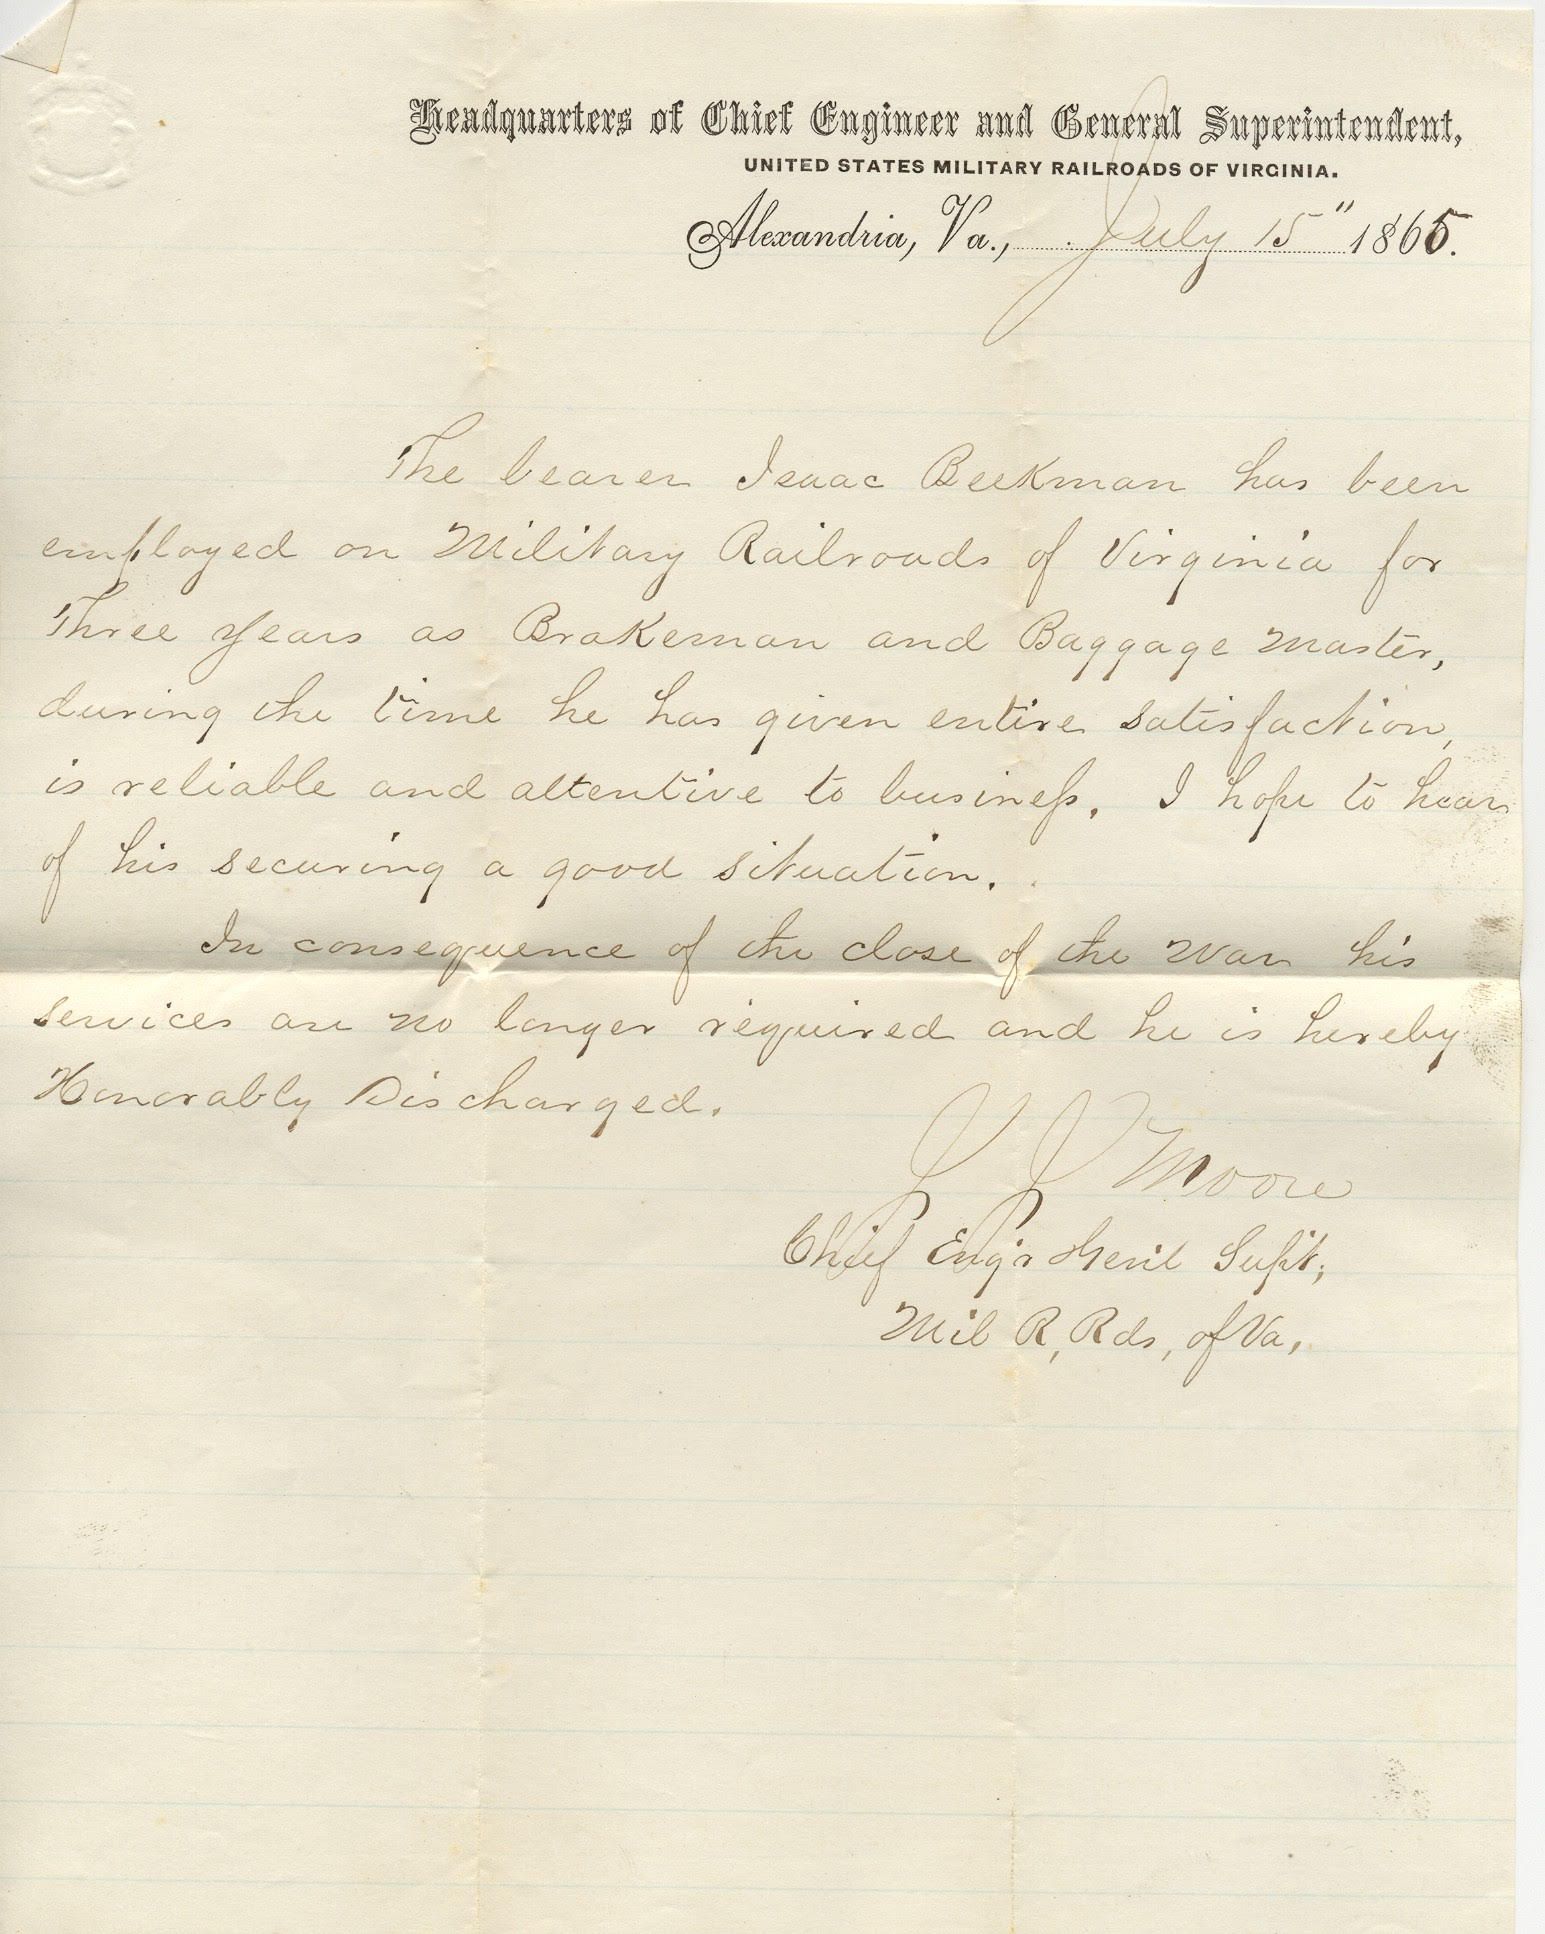 Headquarters of Chief Engineer and General Superintendent,
UNITED STATES MILITARY RAILROADS OF VIRGINIA.
Alexandria, Va., July 15" 1865.
The bearer Isaac Beekman has been
employed on Military Railroads of Virginia for
Three Years as Brakeman and Baggage Master,
during the time he has given entire satisfaction,
is reliable and attentive to business. I hope to hear
of his securing a good situation.
In consequence of the close of the War his
services are no longer required and he is hereby
Honorably Discharged.
J J Moore
Chief Eng'r Gen'l Sup't,
Mil R, Rds, of Va,